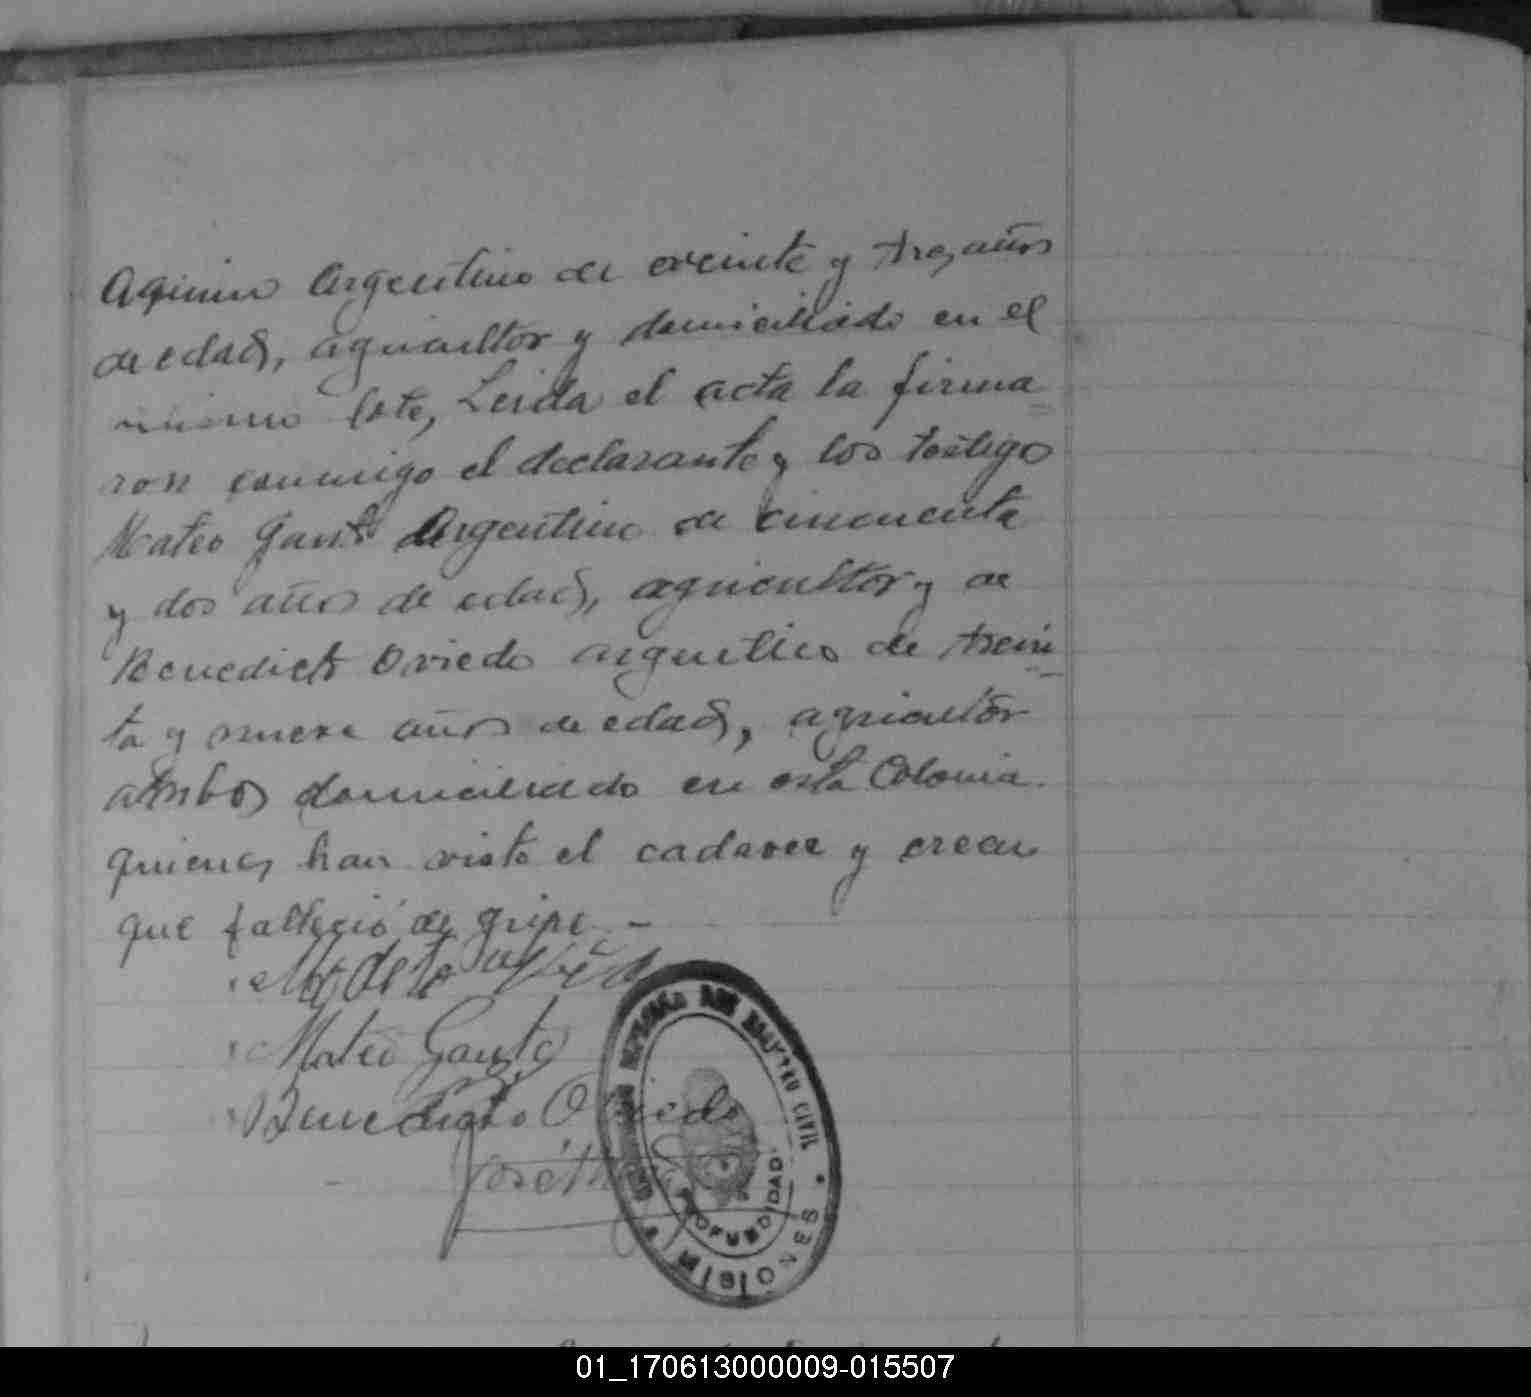 Aquino Argentino de veinte y tres años
de edad, agricultor y domiciliado en el
mismo lote, Leida el acta la firma=
ron conmigo el declarante y los testigo
Mateo Argentino de cincuenta
y dos años de edad, agricultor y de
Benedicto Oviedo argentino de trein=
ta y nueve años de edad, agricultor
ambos domiciliado en esta Colonia.
quienes han visto el cadaver y creen
que falleció de gripe. —
Modesto
Mateo
Benedicto Oviedo
José
REGISTRO CIVIL
PROFUNDIDAD
MISIONES
01_170613000009-015507